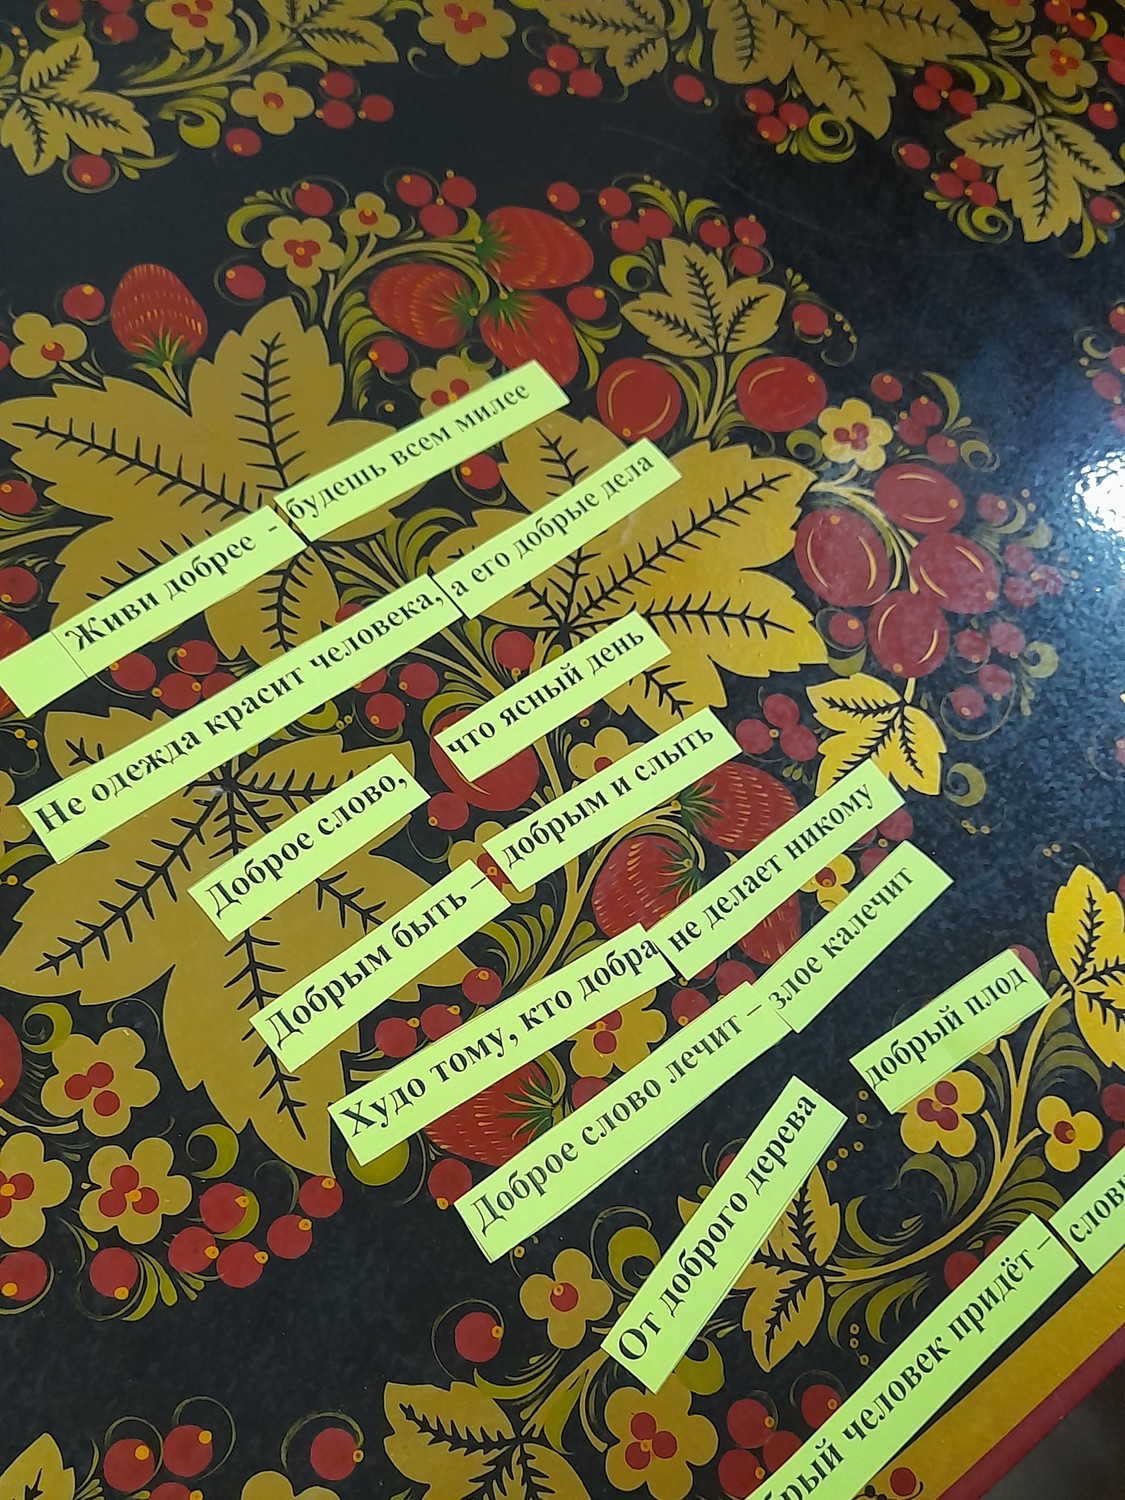 Живи добрее - будешь всем милее
Не одежда красит человека, а его добрые дела
Доброе слово, что ясный день
Добрым быть – добрым и слыть
Худо тому, кто добра не делает никому
Доброе слово лечит – злое калечит
От доброго дерева добрый плод
человек придёт –